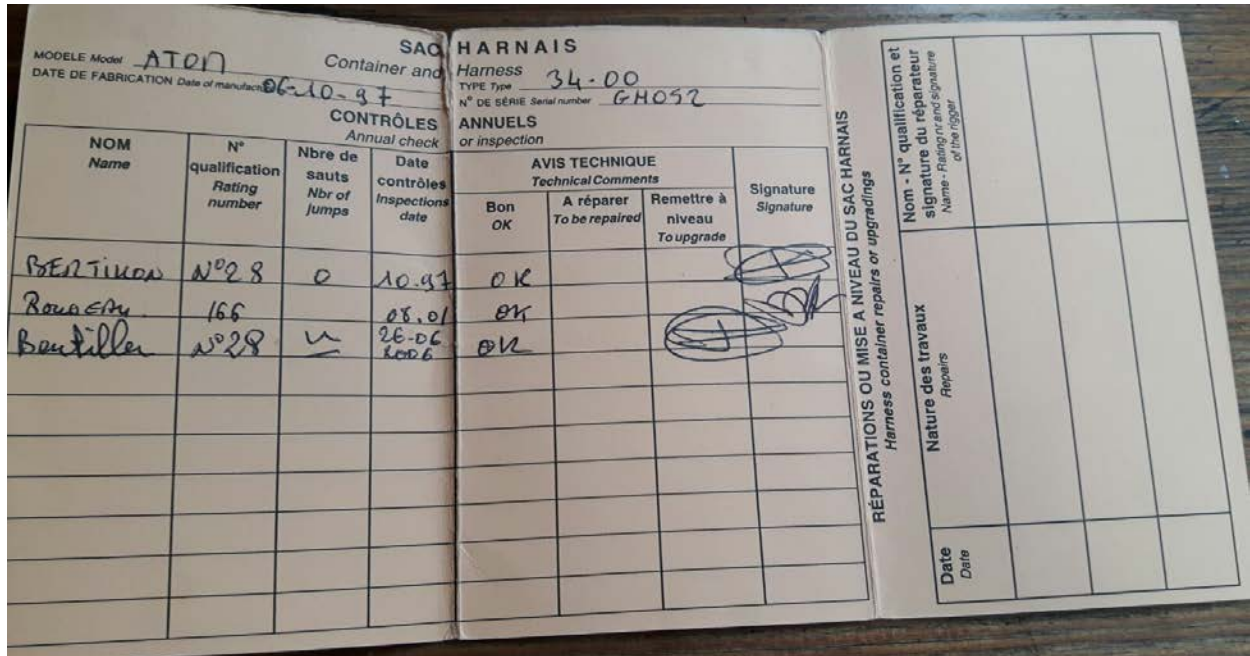 SAC HARNAIS
Container and Harness
MODELE Model ATON
TYPE Type 34-00
DATE DE FABRICATION Date of manufacture 06-10-97
N° DE SÉRIE Serial number GH052
CONTRÔLES ANNUELS
Annual check or inspection
NOM
Name
N° qualification
Rating number
Nbre de sauts
Nbr of jumps
Date contrôles
Inspections date
AVIS TECHNIQUE
Technical Comments
Bon
OK
A réparer
To be repaired
Remettre à niveau
To upgrade
Signature
Signature
N°28 0 10.97 OK
166 08.01 OK
N°28 26-06 2006 OK
RÉPARATIONS OU MISE A NIVEAU DU SAC HARNAIS
Harness container repairs or upgradings
Nom - N° qualification et
signature du réparateur
Name - Rating nr and signature
of the rigger
Nature des travaux
Repairs
Date
Date